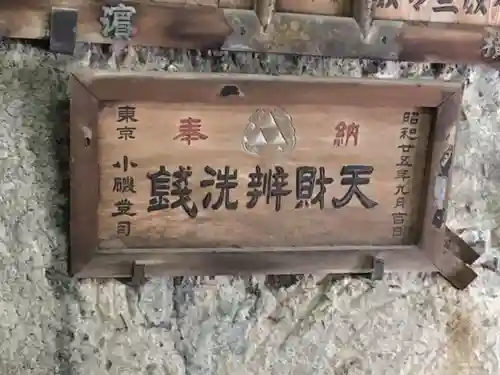 奉納
昭和廿五年九月吉日
天財辨洗銭
東京 小磯堂司